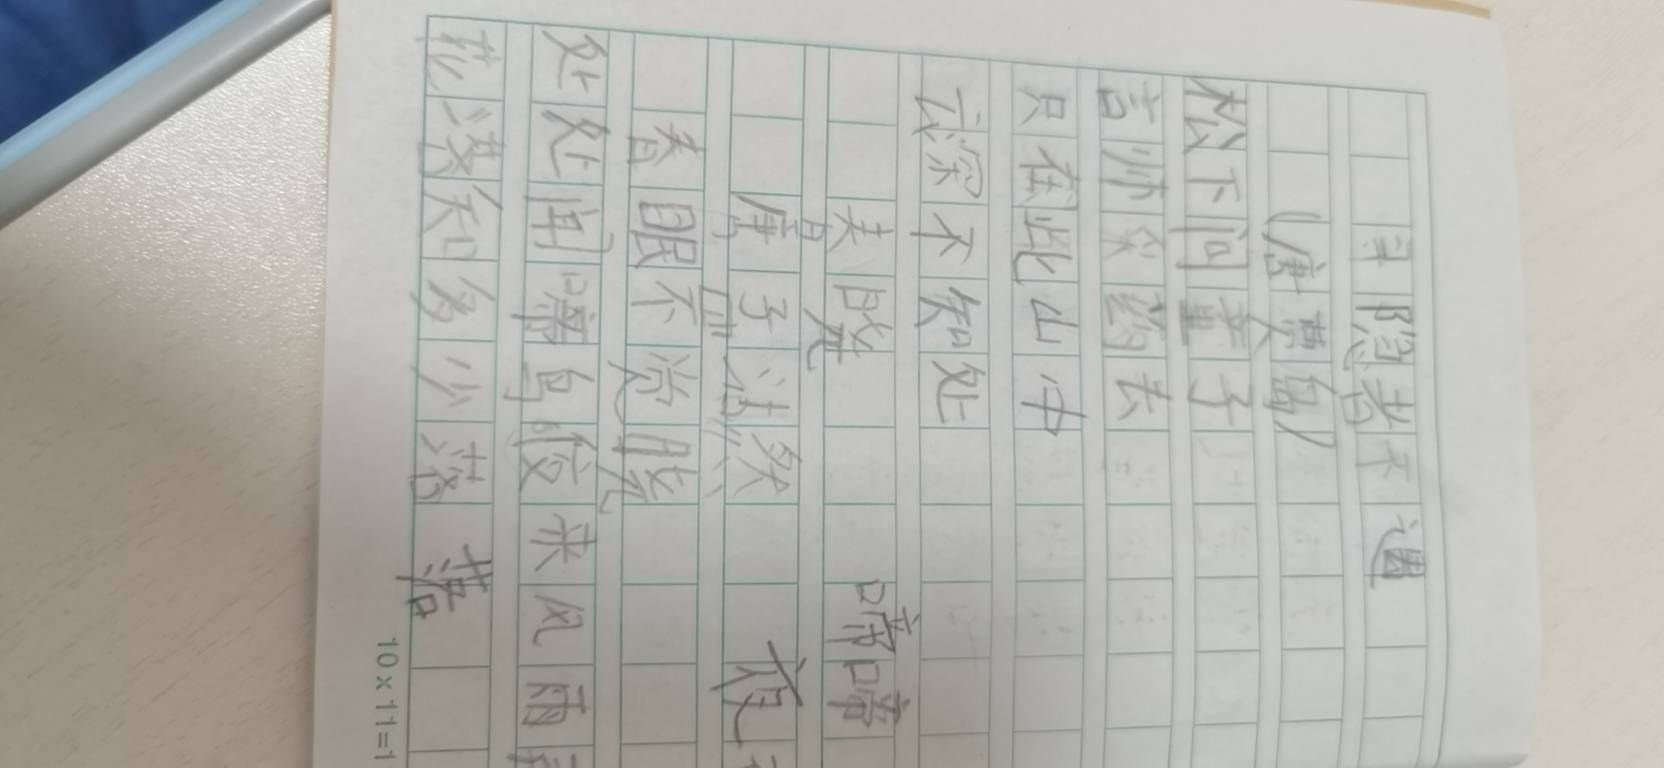 寻隐者不遇
(唐贾岛)
松下问童子
言师采药去
只在此山中
云深不知处
春晓
啼啼
唐孟浩然
夜
春眠不觉晓
处处闻啼鸟夜来风雨
花落知多少落
落
10×11=1